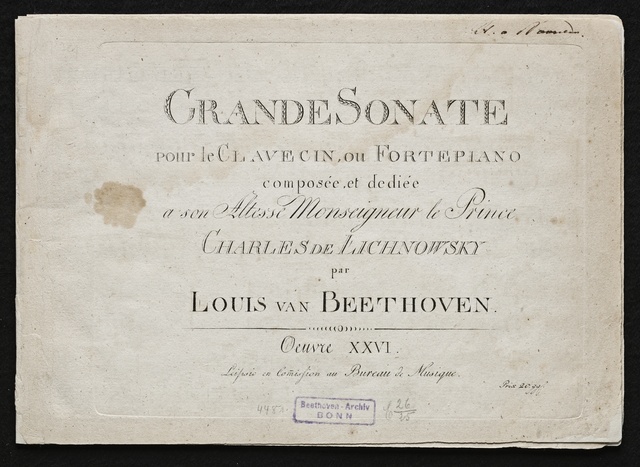 GRANDE SONATE
pour le CLAVECIN, ou FORTEPIANO
composée et dediée
a son Altesse Monseigneur le Prince
CHARLES DE LICHNOWSKY
par
LOUIS VAN BEETHOVEN.
Oeuvre XXVI.
Leipsic en Comission au Bureau de Musique.
Prix 20 gg.
Beethoven-Archiv
BONN
C 26/25